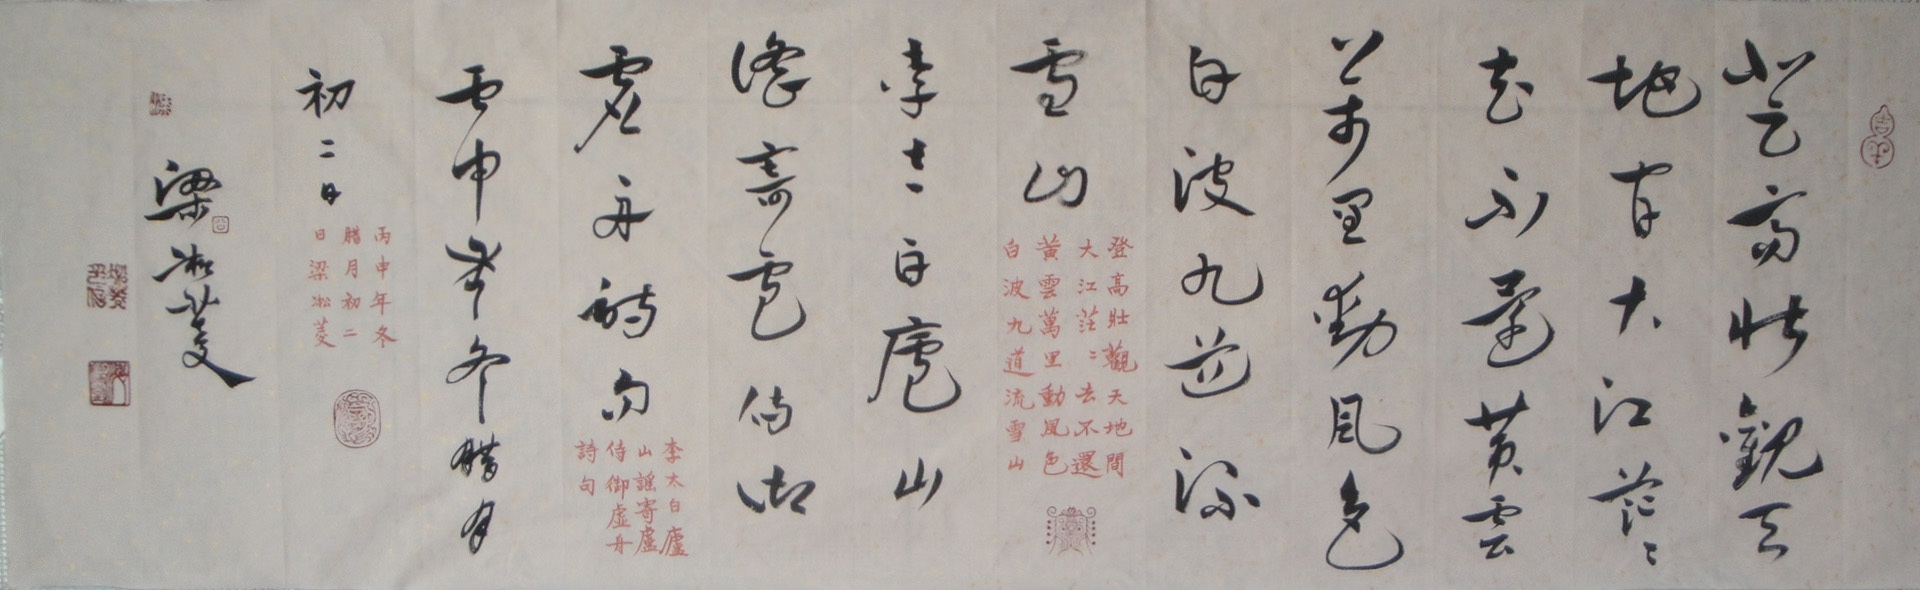 登高壯觀天
地間大江茫〻
去不還黃雲
萬里動風色
白波九道流
雪山
登高壯觀天地間
大江茫〻去不還
黃雲萬里動風色
白波九道流雪山
李太白廬山
謠寄盧侍御
虛舟詩句
李太白廬
山謠寄盧
侍御虛舟
詩句
丙申年冬腊月
初二日
丙申年冬
腊月初二
日梁凇菱
梁凇菱